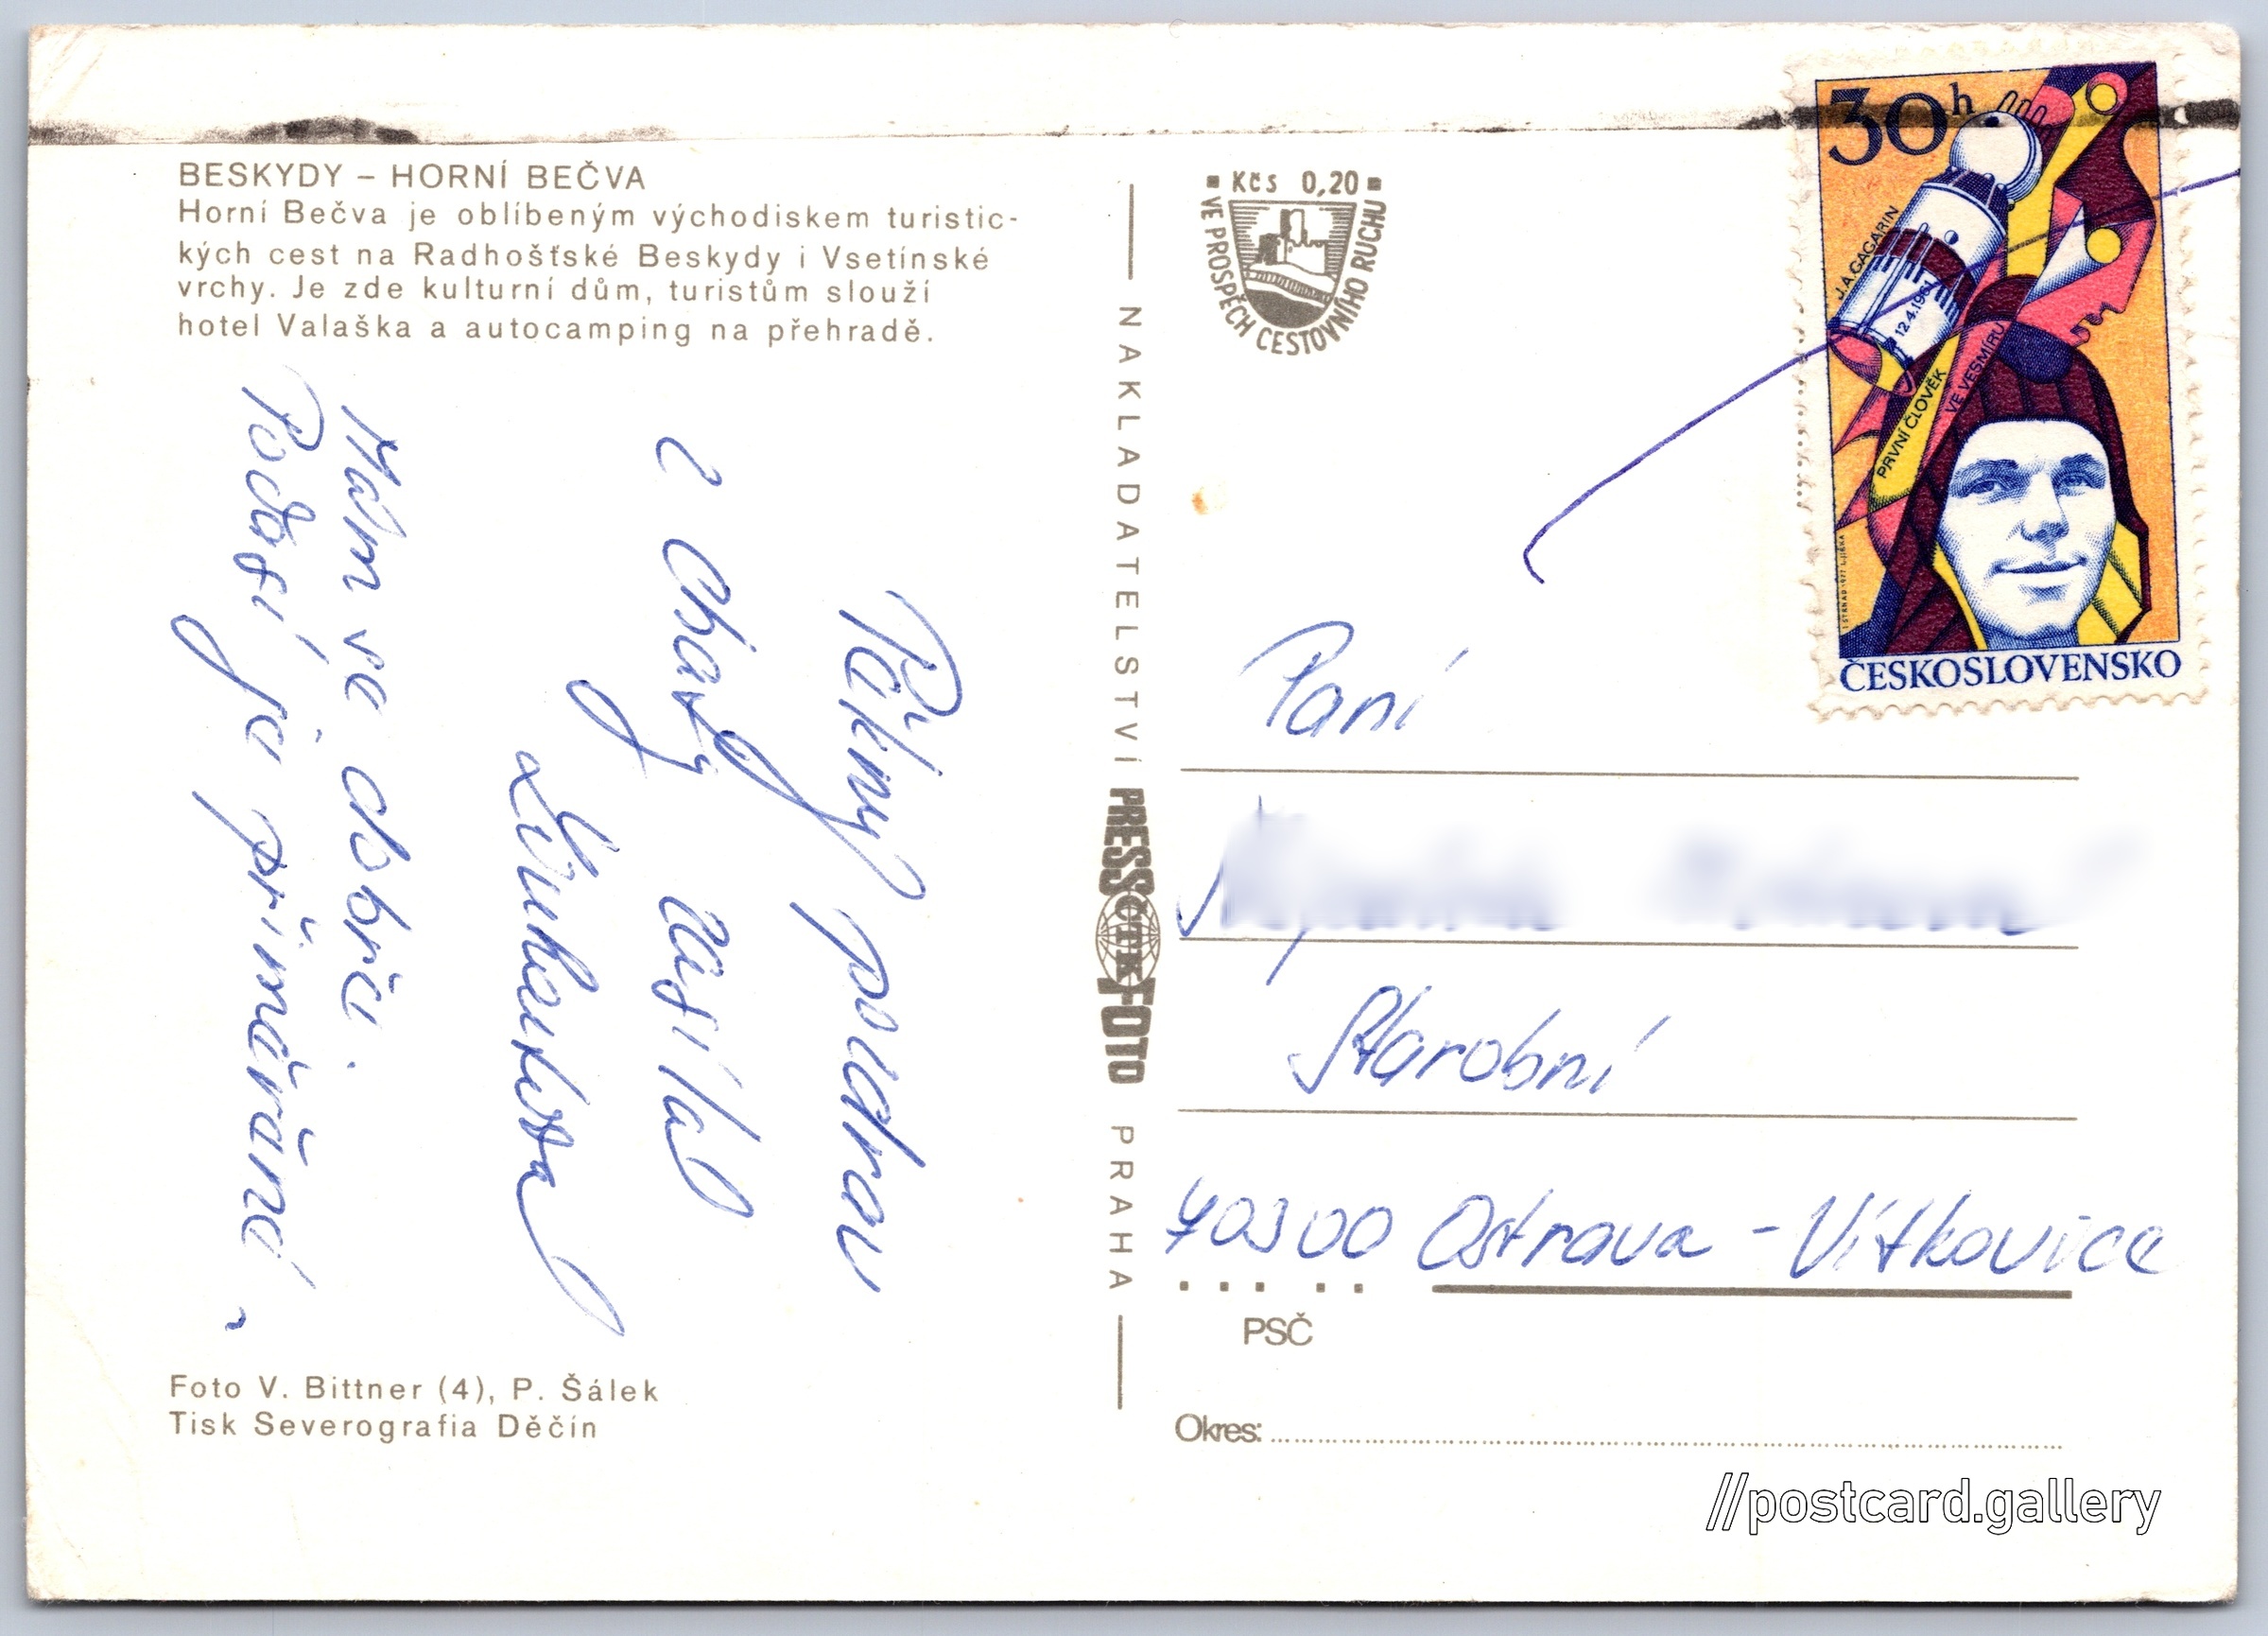 BESKYDY – HORNÍ BEČVA
Horní Bečva je oblíbeným východiskem turistic-
kých cest na Radhošťské Beskydy i Vsetínské
vrchy. Je zde kulturní dům, turistům slouží
hotel Valaška a autocamping na přehradě.
Pěkný pozdrav
z Chaty
Mám se dobře.
Počasí je přiměřené
Foto V. Bittner (4), P. Šálek
Tisk Severografia Děčín
NAKLADATELSTVÍ PRESSFOTO PRAHA
ČTK
Kčs 0,20
VE PROSPĚCH CESTOVNÍHO RUCHU
30h
J.A.GAGARIN
12.4.1961
PRVNÍ ČLOVĚK
VE VESMÍRU
ČESKOSLOVENSKO
Paní
Starobní
70300 Ostrava - Vítkovice
PSČ
Okres:
//postcard.gallery